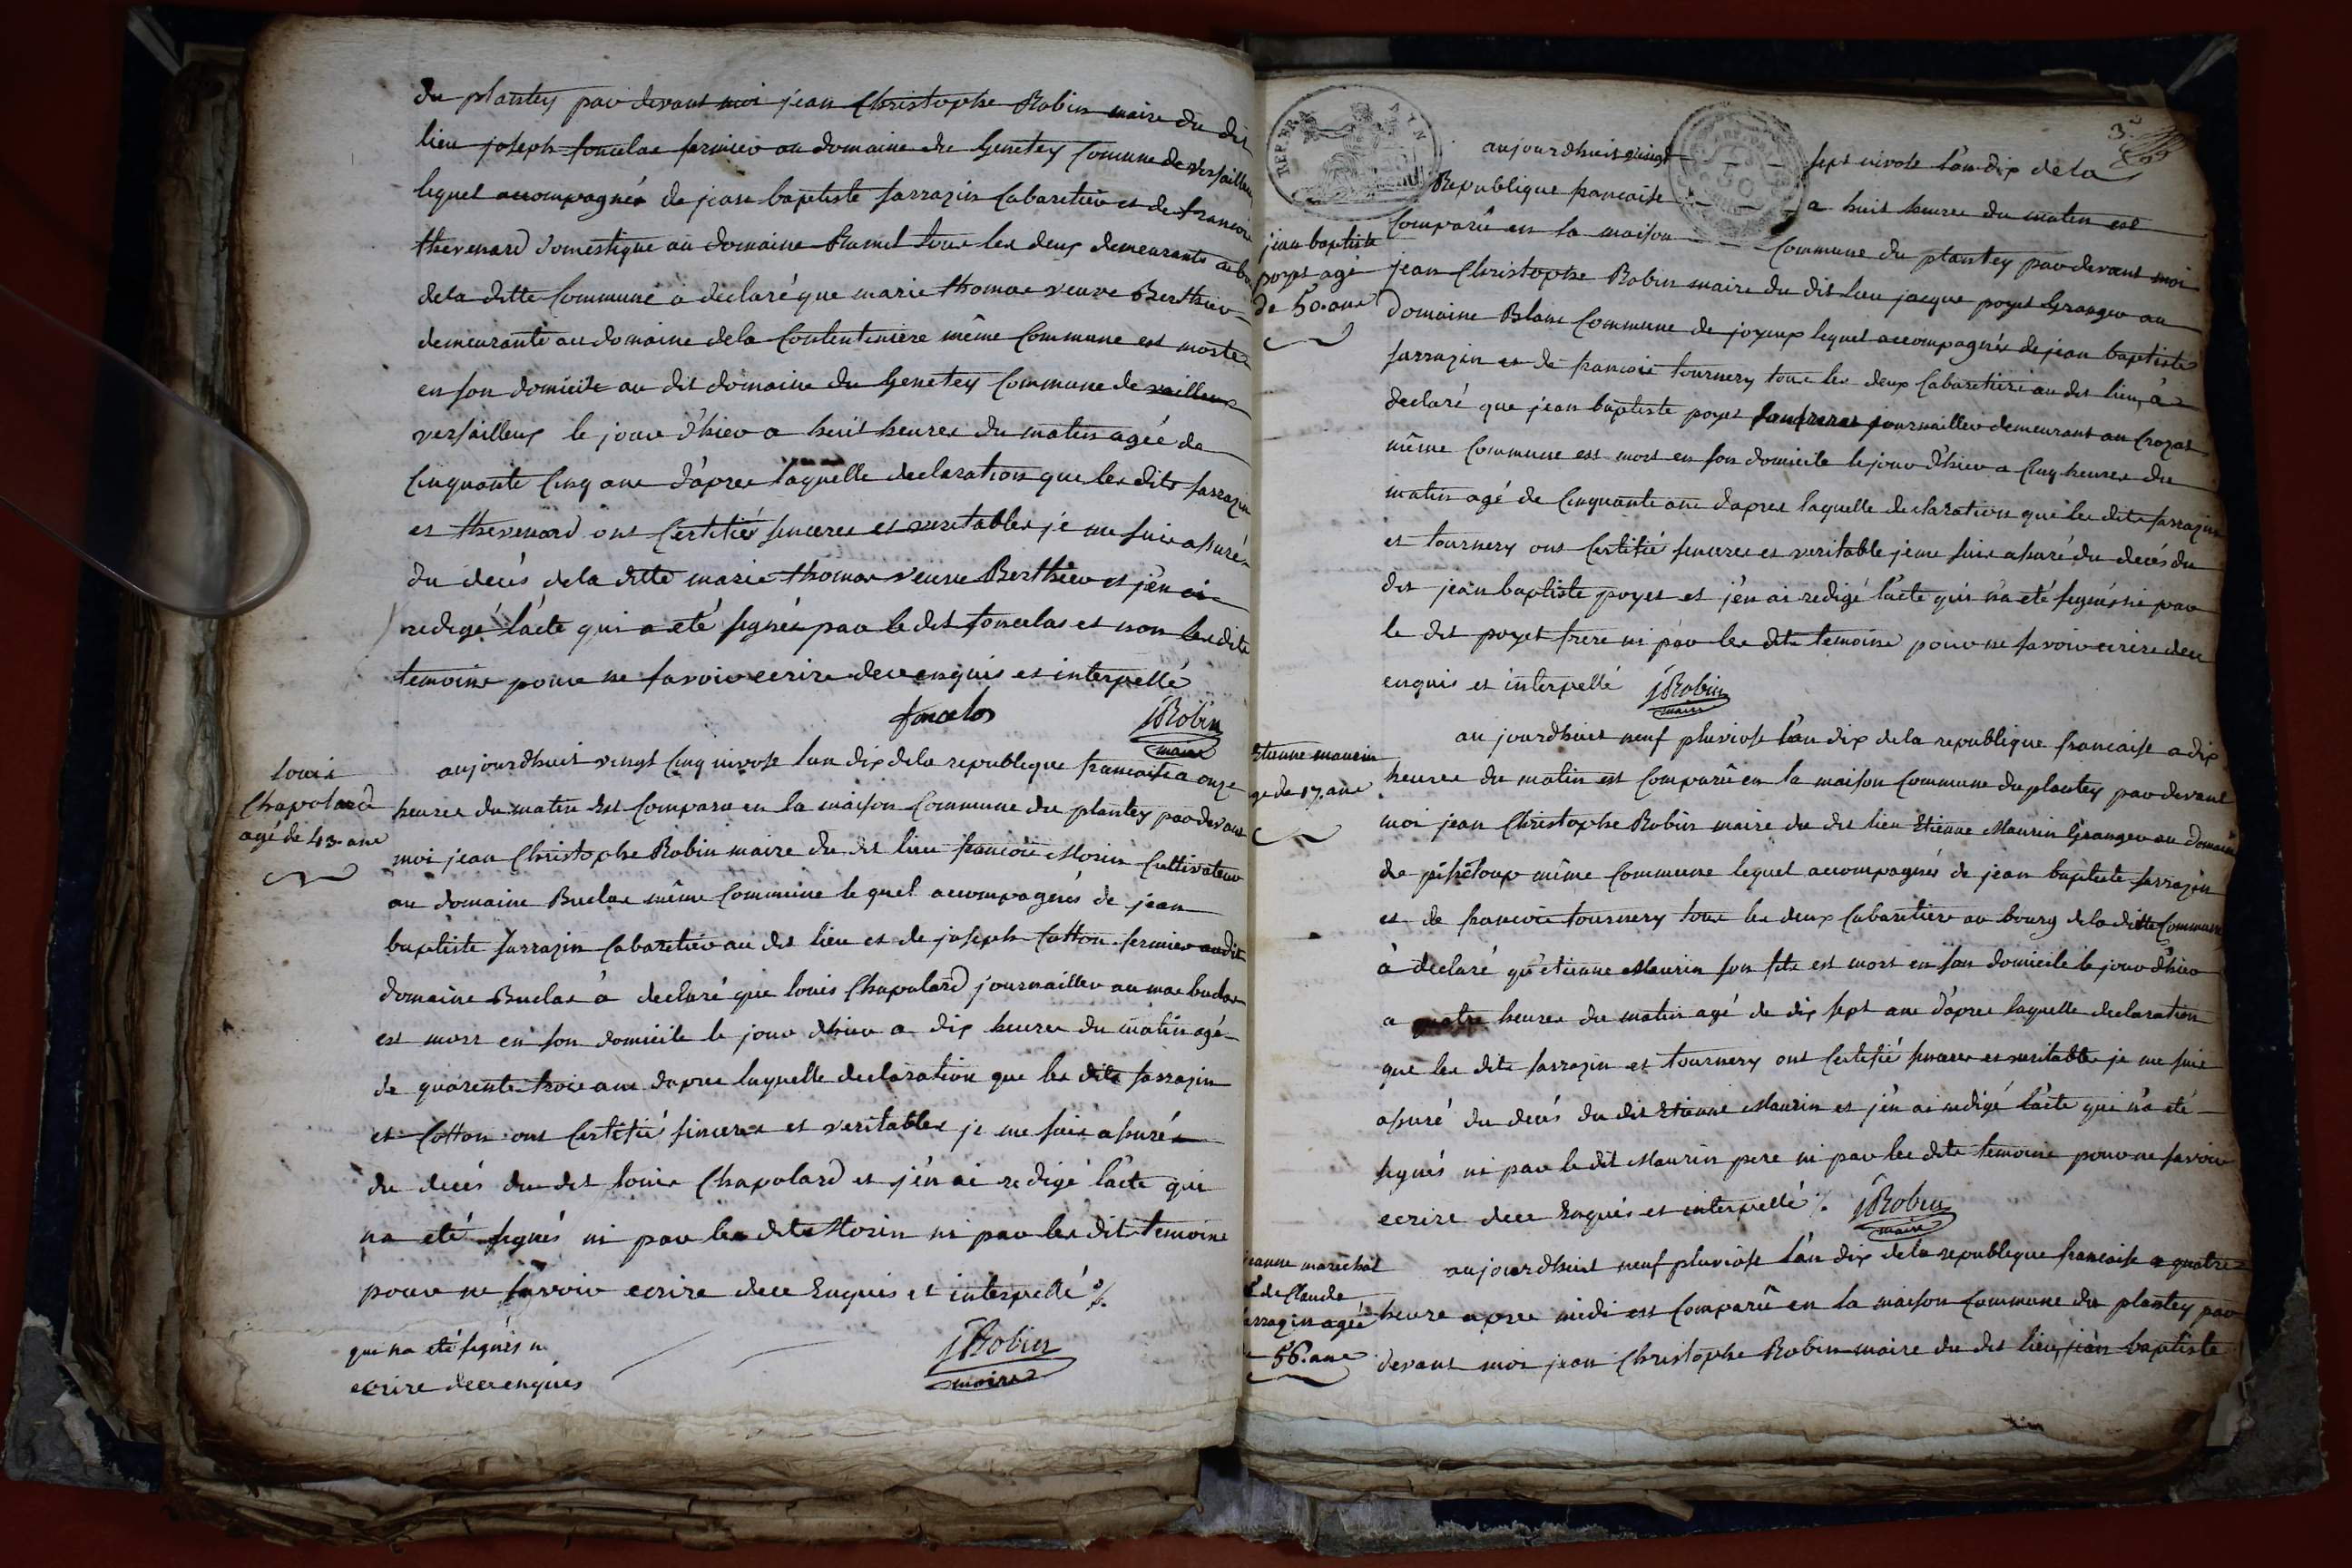 du plantey par devant moi jean Christophe Robin maire du dit
lieu joseph foncelas fermier au domaine du Genetey Comune de versailleux
lequel accompagnés de jean baptiste sarrazin Cabaretier et de francois
thevenard domestique au domaine Ramel tous les deux demeurants
dela ditte Commune a declaré que marie thomas veuve Berthier
demeurante au domaine dela Contentiniere même Commune est morte
en son domicile au dit domaine du Genetey Commune de
versailleux le jour d'hier a huit heures du matin agée de
Cinquante Cinq ans d'apres laquelle declaration que les dits sarrazin
et thevenard ont Certifié sinceres et veritables je me suis assurés
du decés dela ditte marie thomas veuve Berthier et j'en ai
redigé l'acte qui a eté signés par le dit foncelas et non les dits
temoins pour ne savoir ecrire dece enquis et interpellé
foncelas jRobin
maire
Louis
Chapolard
agé de 43. ans
aujourdhuit vingt Cinq nivose lan dix dela republique francaise a onze
heures du matin Est Comparu en la maison Commune du plantey par devant
moi jean Christophe Robin maire du dit lieu francois Morin Cultivateur
au domaine Buclas même Commune lequel accompagnés de jean
baptiste Sarrazin Cabaretier au dit lieu et de joseph Cotton fermier audit
domaine Buclas à declaré que louis Chapolard journaillier au mas buclas
est mort en son domicile le jour dhier a dix heures du matin agé
de quarente trois ans dapres laquelle declaration que les dits sarrazin
et Cotton ont Certifié sinceres et veritables je me suis assurés
du decés du dit louis Chapolard et j'en ai redigé l'acte qui
na eté signés ni par les dits Morin ni par les dits temoins
pour ne savoir ecrire dece Enquis et interpellé %.
qui na eté signés n
ecrire dece enquis
jRobin
maire
3e
REP. FRA. AYN
50
aujourdhuit vingt sept nivose l'an dix dela
Republique francaise a huit heures du matin est
Comparû en la maison Commune du plantey par devant moi
jean baptiste
poyet agé
de 50. ans
jean Christophe Robin maire du dit lieu jacque poyet Granger au
domaine Blanc Commune de joyeux lequel accompagnés de jean baptiste
sarrazin et de francois tournery tous les deux Cabaretiers au dit lieu, à
declaré que jean baptiste poyet journaillier demeurant au Crozat
même Commune est mort en son domicile le jour d'hier a Cinq heures du
matin agé de Cinquante ans d'apres laquelle declaration que les dits sarrazin
et tournery ont Certifié sinceres et veritable je me suis assuré du decés du
dit jean baptiste poyet et j'en ai redigé l'acte qui n'a eté signés ni par
le dit poyet frere ni par les dits temoins pour ne savoir ecrire dece
enquis et interpellé jRobin
maire
Etienne maurin
gé de 17. ans
au jourdhuit neuf pluviose l'an dix dela republique francaise a dix
heures du matin est Comparû en la maison Commune du plantey par devant
moi jean Christophe Robin maire du dit lieu Etienne Maurin Granger au domaine
de même Commune lequel accompagnés de jean baptiste sarrazin
et de francois tournery tous les deux Cabaretiers au bourg dela ditte Commune
à declaré qu'etienne Maurin son fils est mort en son domicile le jour d'hier
a quatre heures du matin agé de dix sept ans d'apres laquelle declaration
que les dits sarrazin et tournery ont Certifié sinceres et veritable je me suis
assuré du decés du dit Etienne Maurin et j'en ai redigé l'acte qui n'a eté
signés ni par le dit Maurin pere ni par les dits temoins pour ne savoir
ecrire dece Enquis et interpellé %. jRobin
maire
jeanne marechal
de Claude
arrazin agée
56. ans
aujourdhuit neuf pluviose l'an dix dela republique francaise a quatre
heure apres midi est Comparû en la maison Commune du plantey par
devant moi jean Christophe Robin maire du dit lieu, jean baptiste